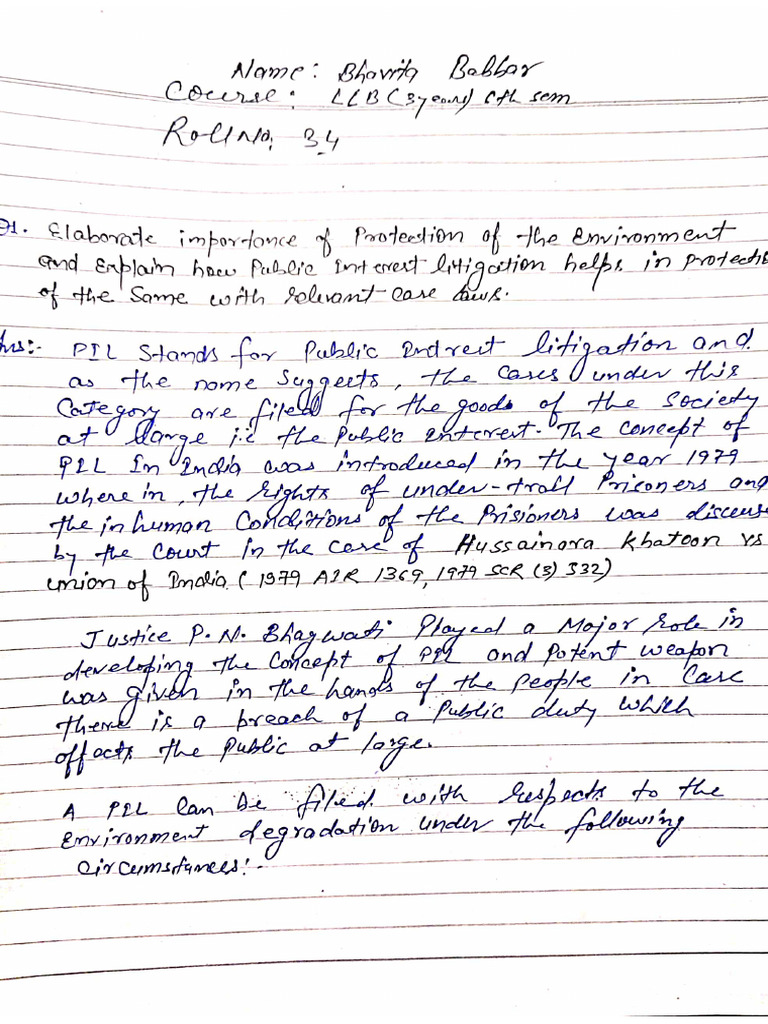 Name: Bhavita Babbar
Course: LLB (3 years) 6th sem
Roll No. 34
Q1. Elaborate importance of Protection of the Environment
and Explain how Public Interest litigation helps in protecti
of the Same with relevant case laws.
Ans:- PIL Stands for Public Intrest litigation and
as the name Suggests, the Cases under this
Category are filed for the goods of the Society
at large i.e the Public interest. The Concept of
PIL In India was introduced in the year 1979
where in, the rights of under-trail Prisoners and
the in human Conditions of the Prisioners was discuse
by the Court in the case of Hussainara Khatoon vs
union of India (1979 AIR 1369, 1979 SCR (3) 532)
Justice P. N. Bhagwati Played a Major role in
developing the Concept of PIL and Potent weapon
was given in the hands of the People in Case
there is a breach of a Public duty which
effects the Public at large.
A PIL Can be filed with respects to the
Environment degradation under the following
Circumstances:-